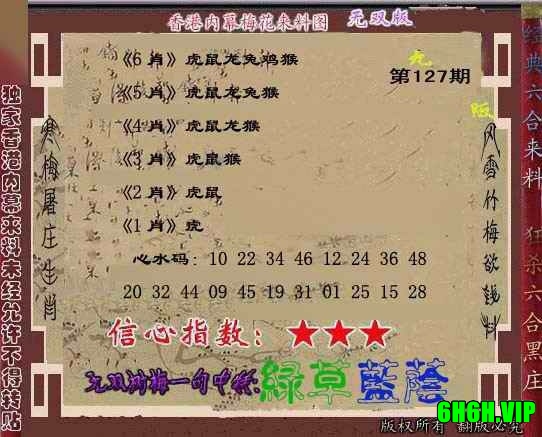 香港内幕梅花来料图 无双版
第127期
《6 肖》虎鼠龙兔鸡猴
《5 肖》虎鼠龙兔猴
《4 肖》虎鼠龙猴
《3 肖》虎鼠猴
《2 肖》虎鼠
《1 肖》虎
心水码：10 22 34 46 12 24 36 48
20 32 44 09 45 19 31 01 25 15 28
信心指数：★★★
无双测梅一句中特:绿草蓝荫
版权所有 翻版必究
6H6H.VIP
独家香港内幕来料未经允许不得转贴
寒梅屠庄生肖
风雪竹梅欲钱料
经典六合来料 狂杀六合黑庄